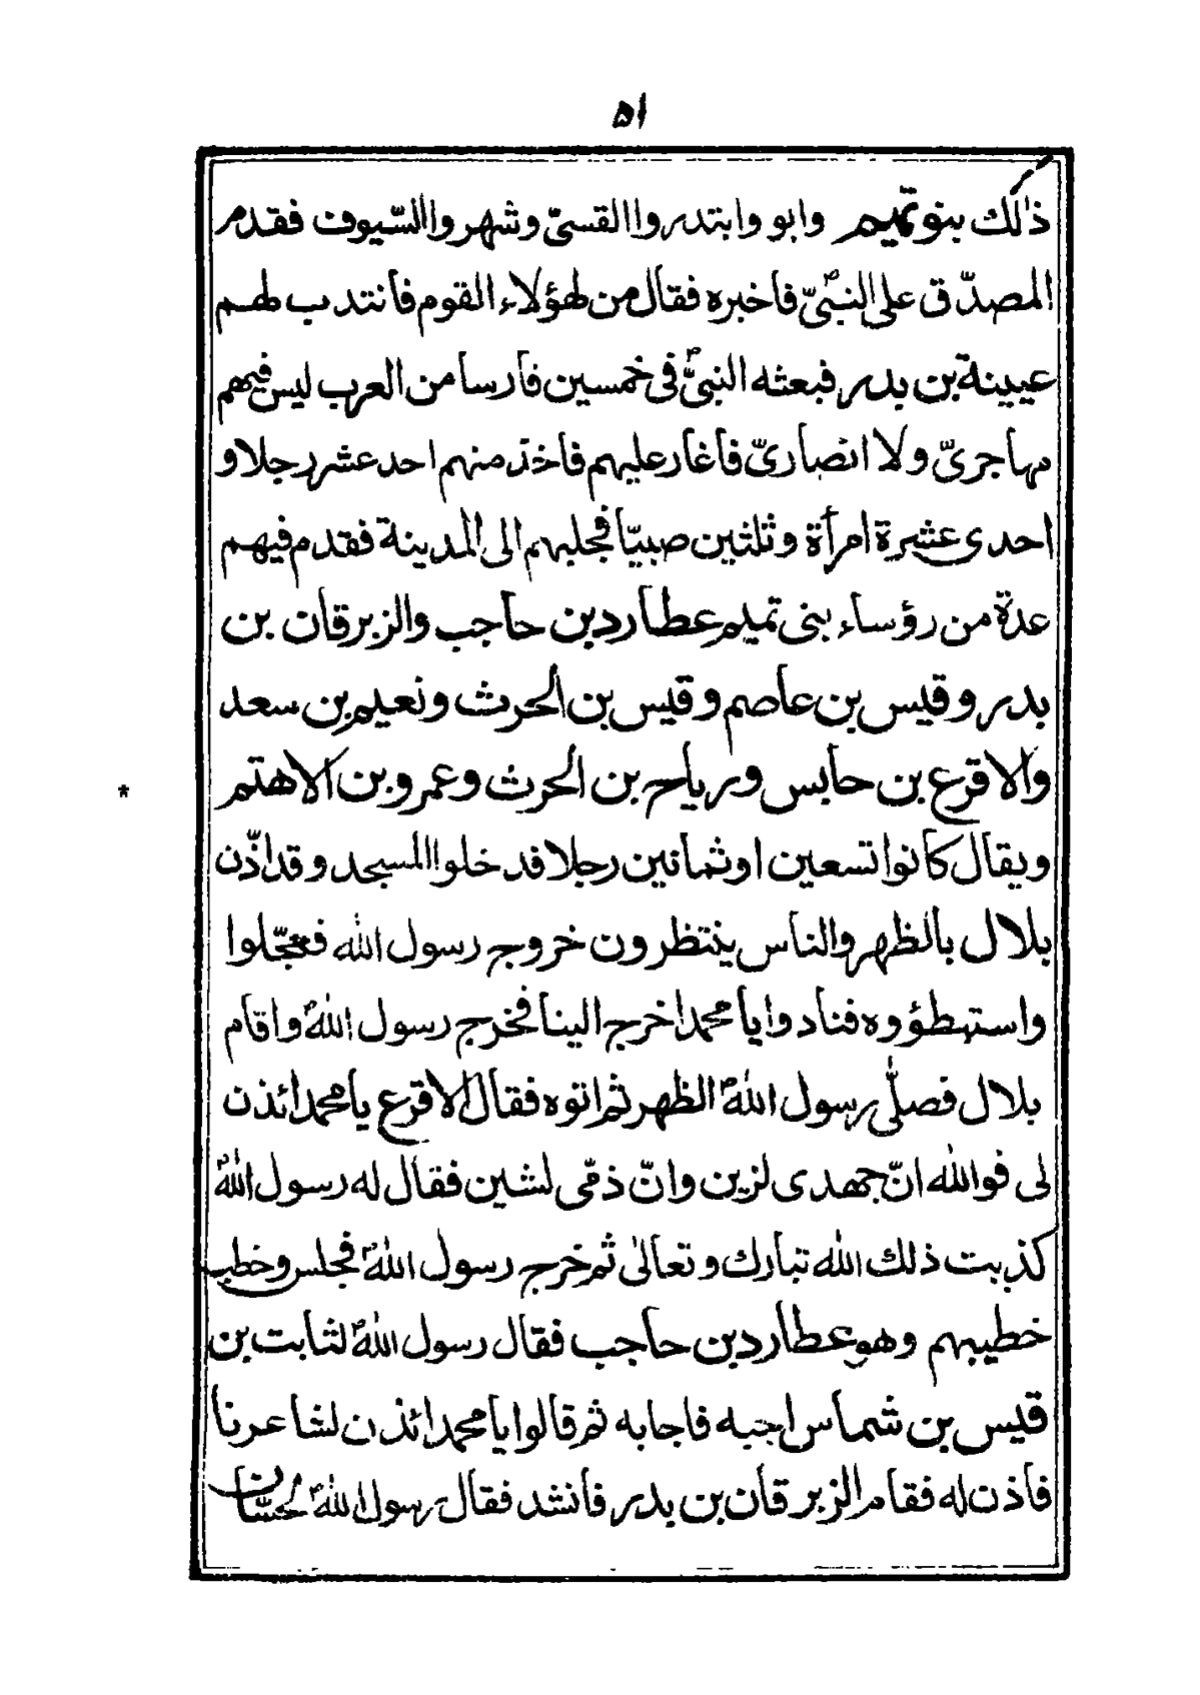 ۵۱
ذلك بنو تميم وابو وابتدروا القسىّ وشهروا السّيوف فقدم
المصدّق على النبىّ فاخبره فقال من لهؤلاء القوم فانتدب لهم
عيينة بن بدر فبعثه النبىّ فى خمسين فارسا من العرب ليس فيهم
مهاجرىّ ولا انصارىّ فاغار عليهم فاخذ منهم احد عشر رجلا و
احدى عشرة امرأة وثلثين صبيّا فجلبهم الى المدينة فقدم فيهم
عدة من رؤساء بنى تميم عطارد بن حاجب والزبرقان بن
بدر وقيس بن عاصم وقيس بن الحرث ونعيم بن سعد
والاقرع بن حابس ورياح بن الحرث وعمرو بن الاهتم
*
ويقال كانوا تسعين او ثمانين رجلا فدخلوا المسجد وقد اذّن
بلال بالظهر والناس ينتظرون خروج رسول الله فعجّلوا
واستبطؤوه فنادوا يا محمد اخرج الينا فخرج رسول اللهؐ واقام
بلال فصلّى رسول اللهؐ الظهر ثم اتوه فقال الاقرع يا محمد ائذن
لى فوالله انّ جهدى لزين وانّ ذمّى لشين فقال له رسول اللهؐ
كذبت ذلك الله تبارك وتعالى ثم خرج رسول اللهؐ فجلس وخطب
خطيبهم وهو عطارد بن حاجب فقال رسول اللهؐ لثابت بن
قيس بن شماس اجبه فاجابه ثم قالوا يا محمد ائذن لشاعرنا
فاذن له فقام الزبرقان بن بدر فانشد فقال رسول اللهؐ لحسّان